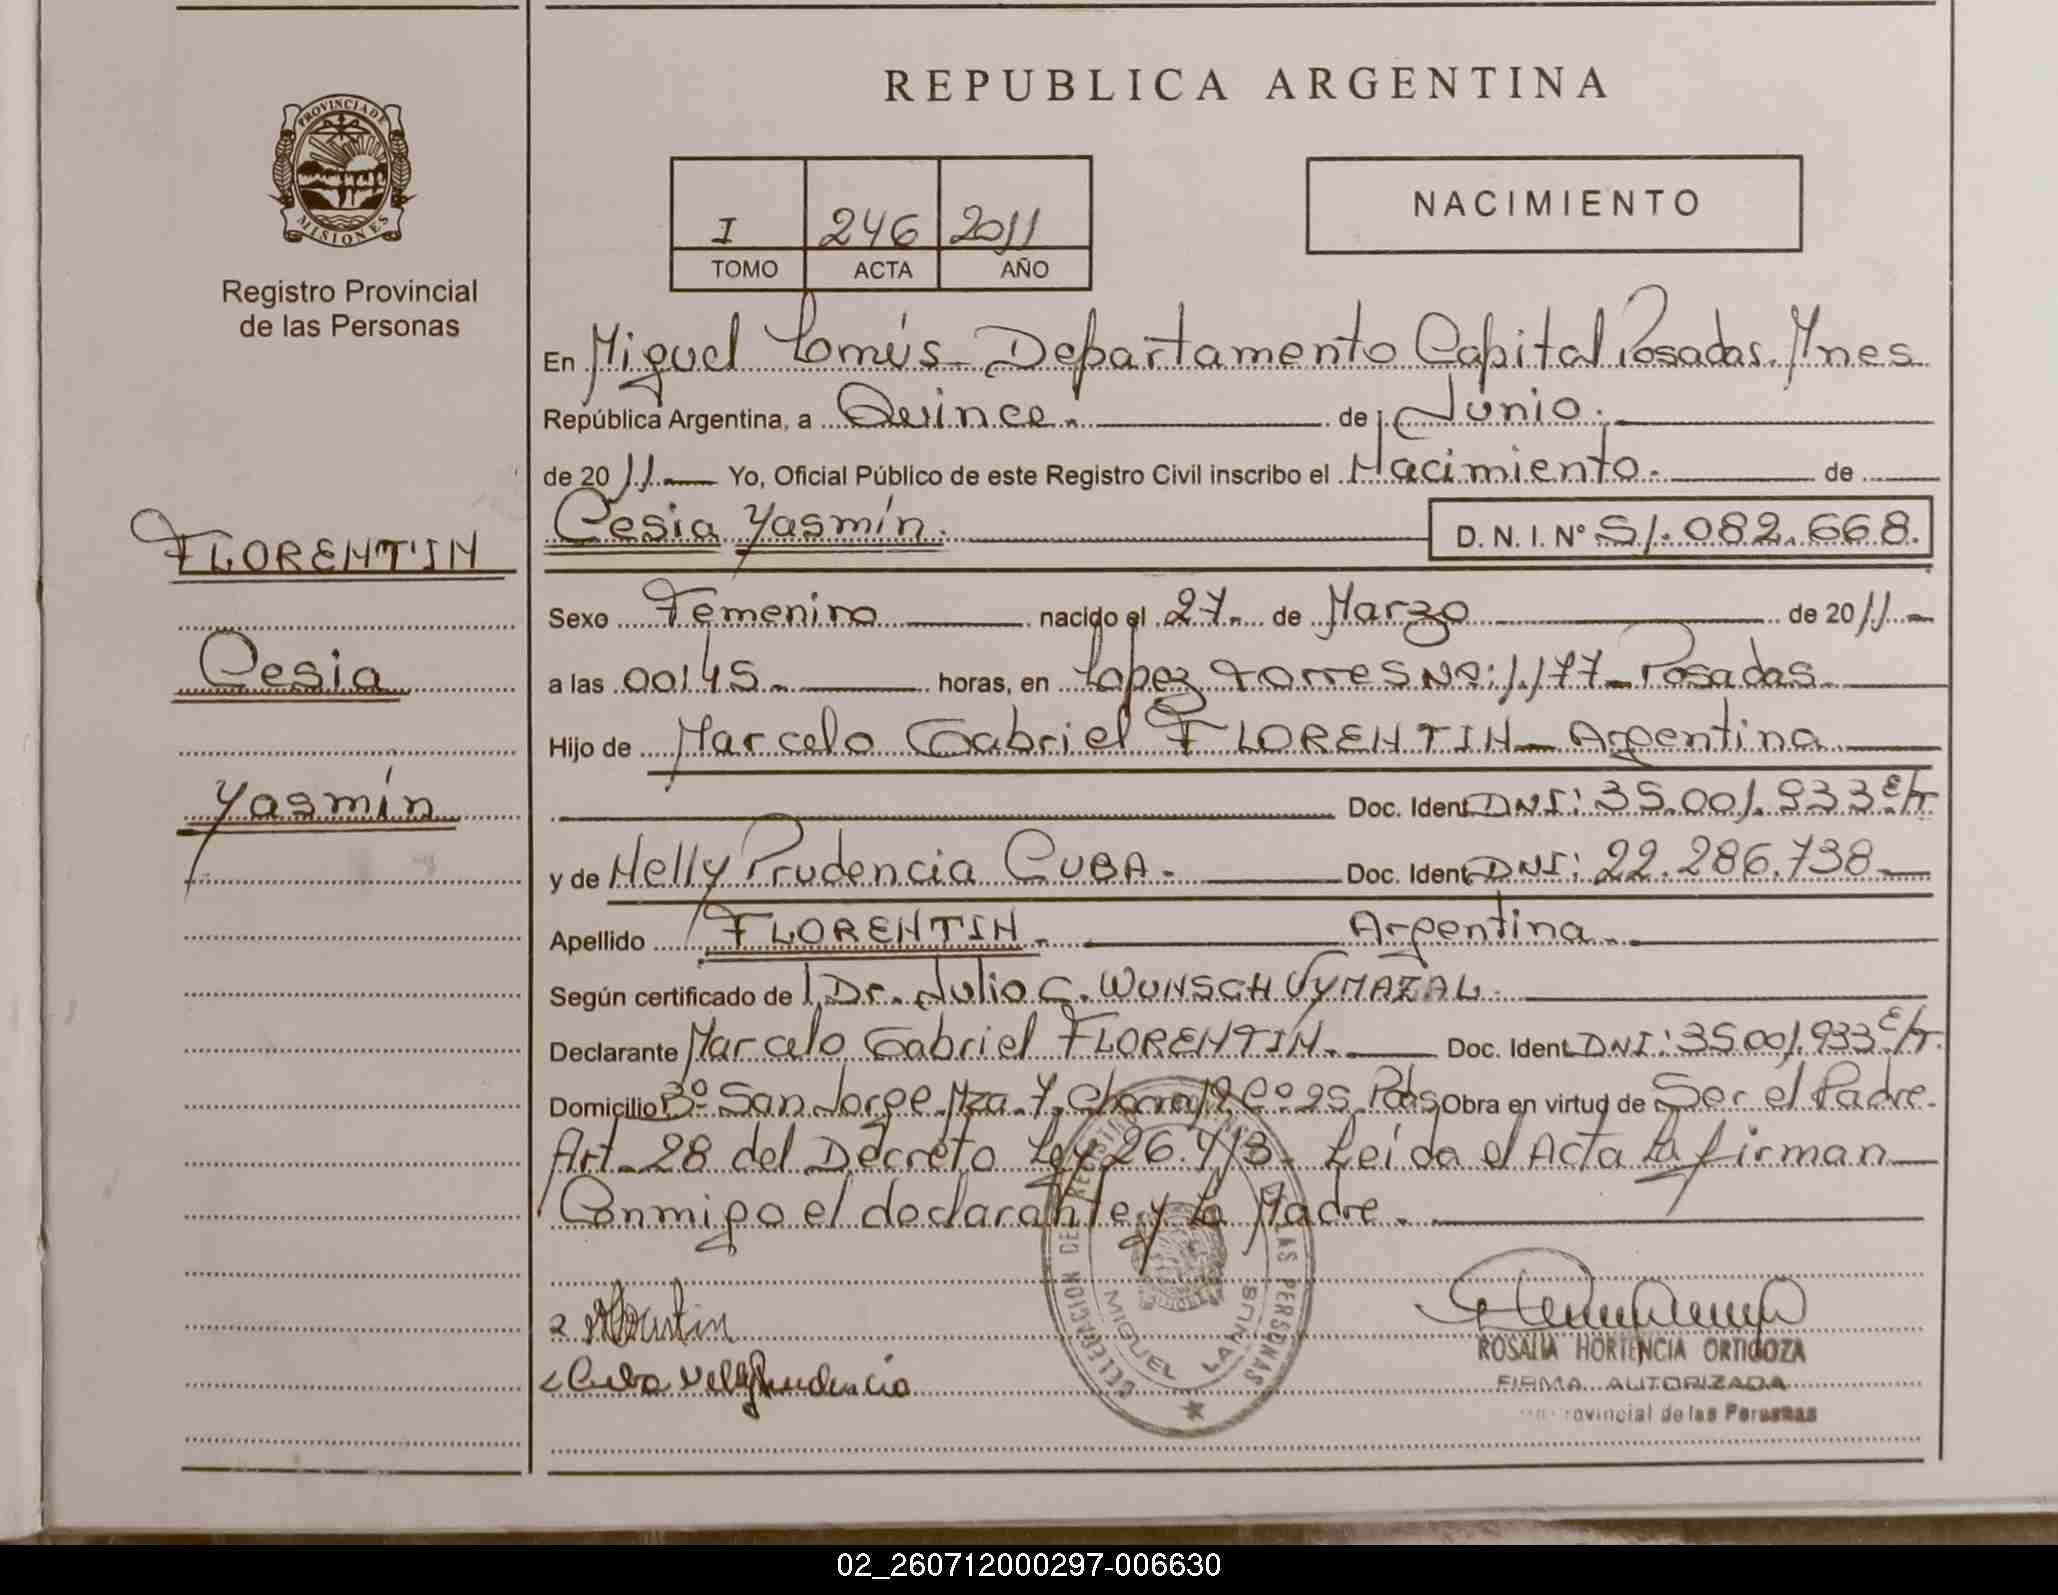 REPUBLICA ARGENTINA
PROVINCIA DE MISIONES
Registro Provincial
de las Personas
I 246 2011
TOMO ACTA AÑO
NACIMIENTO
En Miguel Lanús - Departamento Capital Posadas. Mnes
República Argentina, a Quince. de Junio.
de 2011 Yo, Oficial Público de este Registro Civil inscribo el Nacimiento. de
Cesia Yasmín. D. N. I. Nº 51.082.668.
FLORENTIN
Cesia
Yasmín
Sexo Femenino nacido el 27. de Marzo de 2011
a las 00:45 horas, en Lopez Torres Nº: 1.177 - Posadas
Hijo de Marcelo Gabriel FLORENTIN - Argentina
Doc. Ident DNI: 35.001.933 E/T.
y de Nelly Prudencia CUBA. Doc. Ident DNI: 22.286.738
Apellido FLORENTIN. Argentina
Según certificado de Dr. Julio C. WUNSCH VYMAZAL.
Declarante Marcelo Gabriel FLORENTIN. Doc. Ident DNI: 35.001.933 E/T.
Domicilio Bº San Jorge Mza. Y. Pdas Obra en virtud de Ser el Padre.
Art. 28 del Decreto Ley 26.413. Leída el Acta la firman
Conmigo el declarante y la Madre.
Cuba Nelly Prudencia
DELEGACION DE REGISTRO DE LAS PERSONAS
MIGUEL LANUS
ROSALIA HORTENCIA ORTIGOZA
FIRMA AUTORIZADA
Provincial de las Personas
02_260712000297-006630